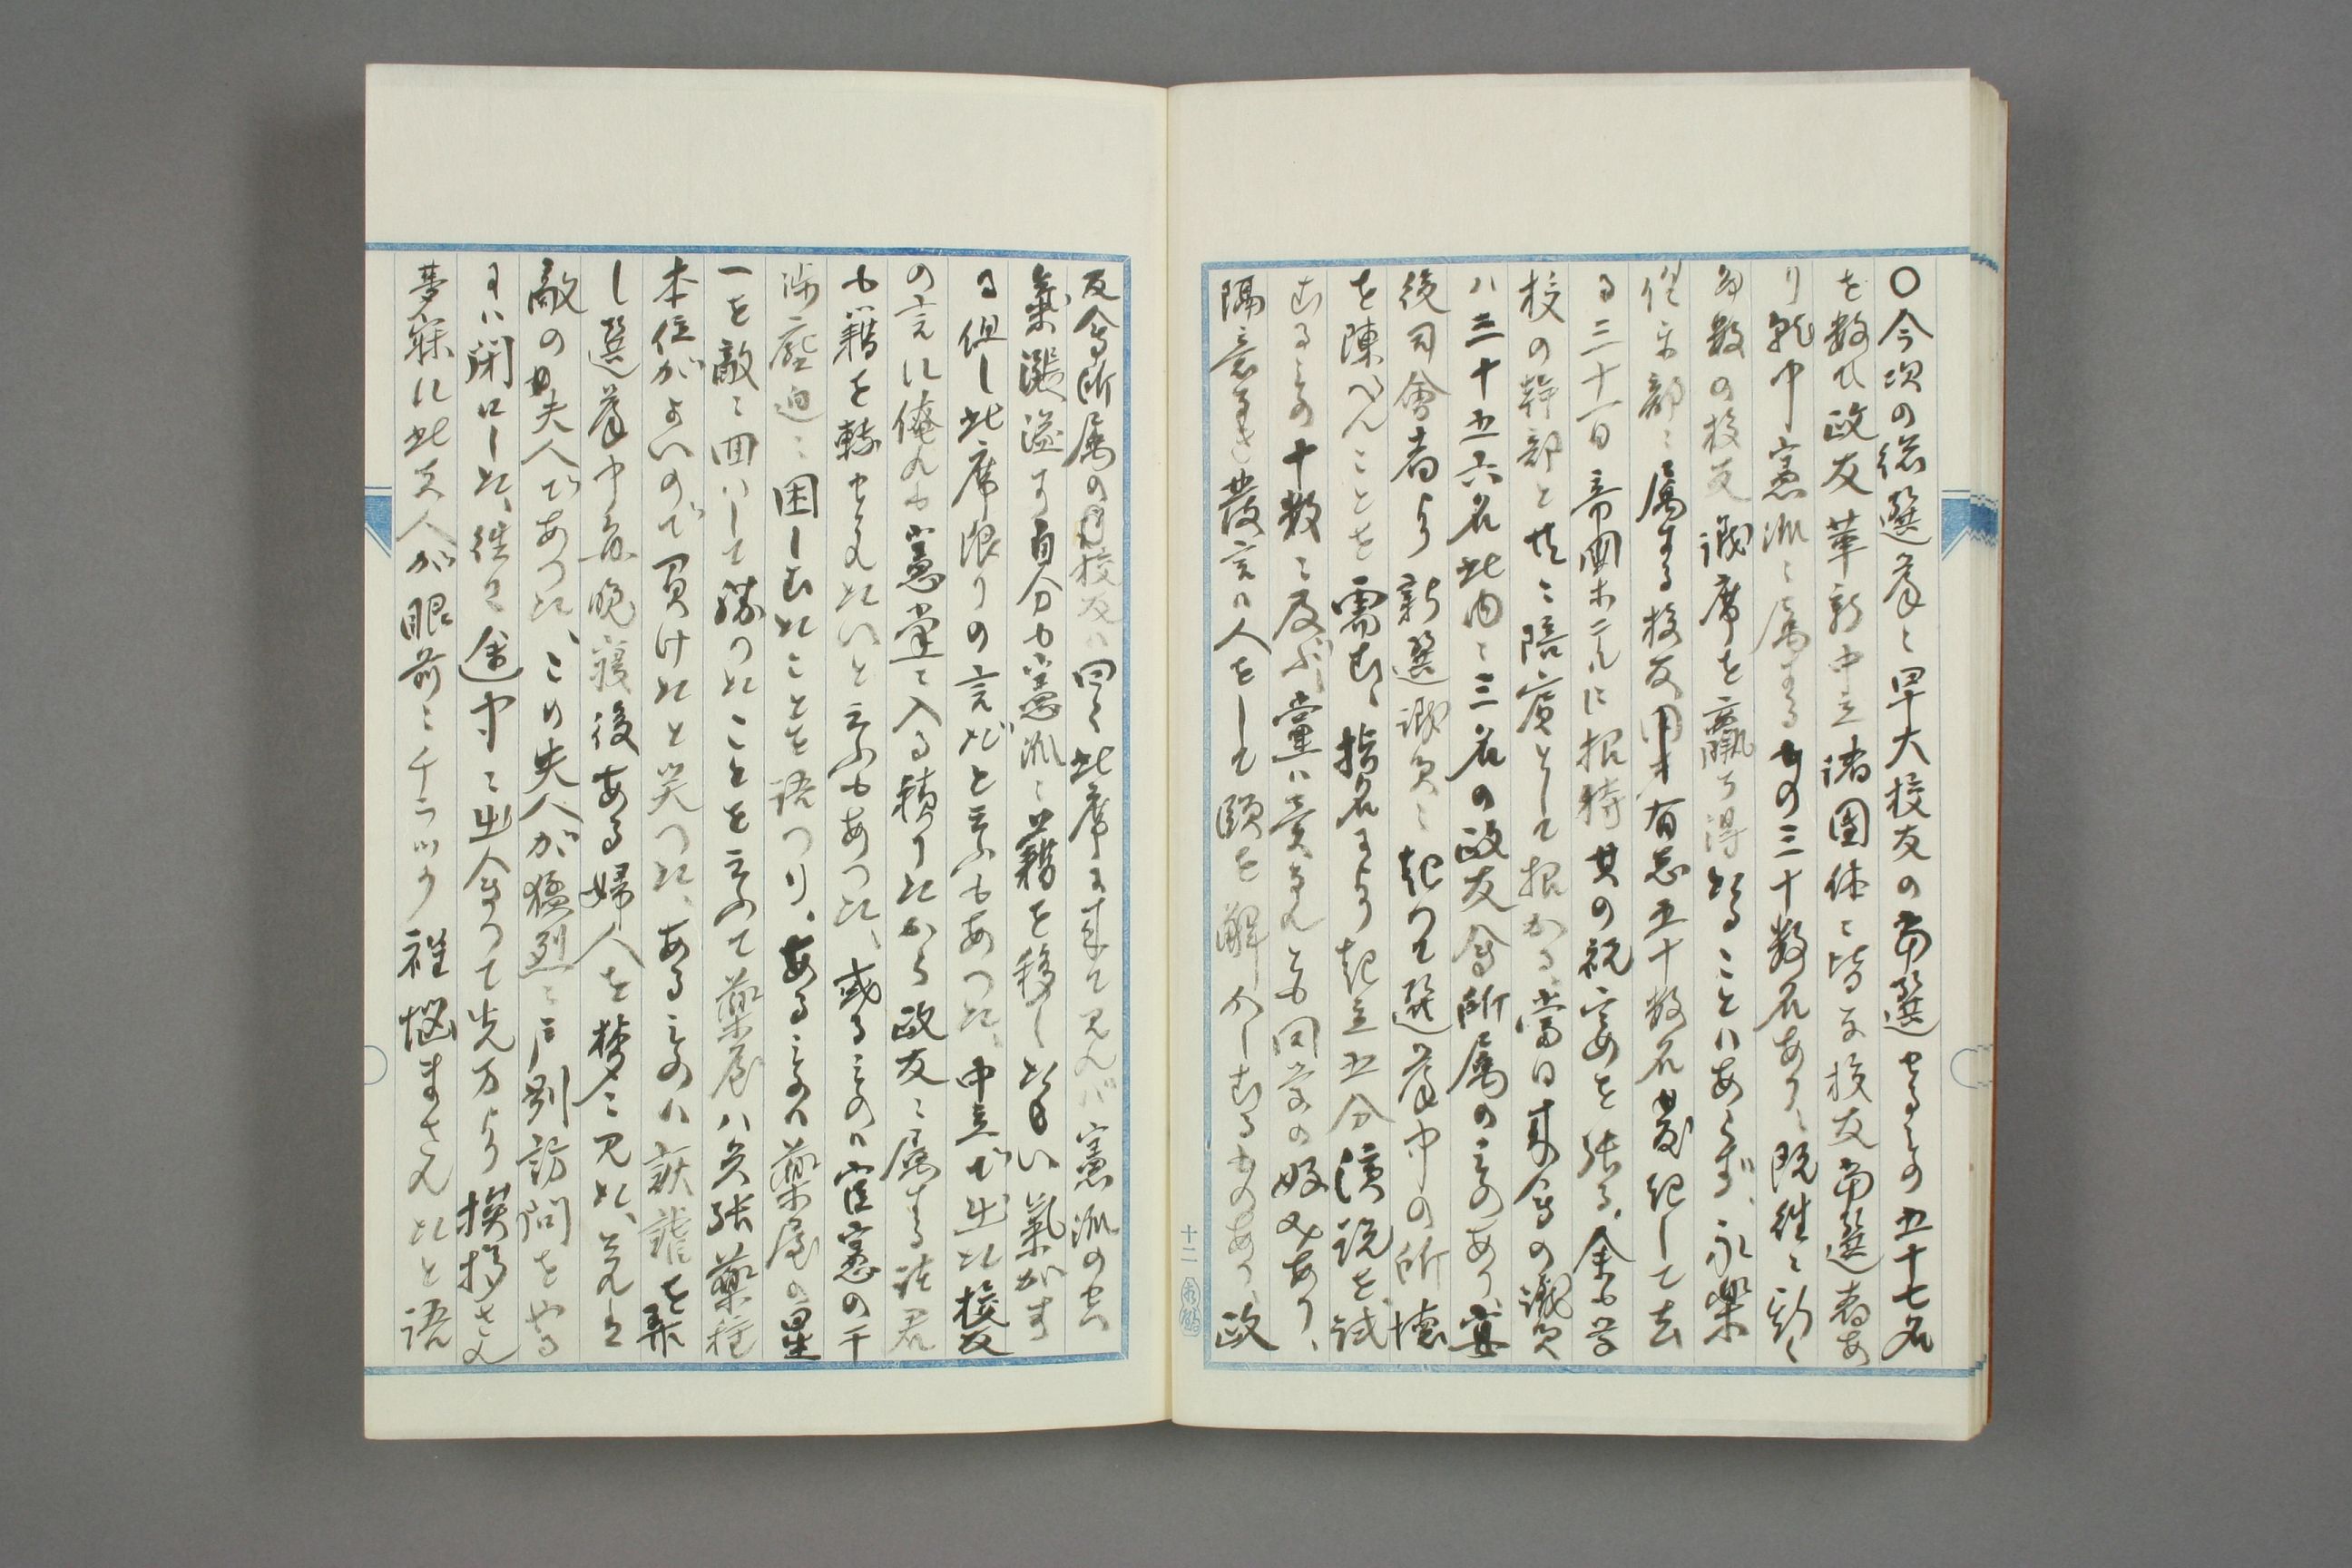 〇今次の總選擧に早大校友の當選せるもの五十七名
を数へ政友革新中立諸團体に皆な校友當選者あ
り就中憲派に属するもの三十数名あり、既往に於て
多数の校友議席を贏ち得たることハあらず、永樂
倶楽部に属する校友有志五十数名発起して去
る三十一日帝国ホテルに招待其の祝宴を張る、余も学
校の幹部と共に陪賓として招かる、當日来会の議員
ハ三十五六名此内に三名の政友会所属のものあり、宴
後司會者より新選議員に起つて選擧中の所懐
を陳べんことを需む、指名により起立五分演説を試
むるもの十数に及ぶ、黨ハ異なれとも同学の好みあり、
隔意なき發言ハ人をして頤を解かしむるものあり、政
友会所属の校友ハ曰く此席に来て見れバ憲派の空
氣漲溢す自分も憲派に籍を移したい氣がす
る但し此席限りの言だと云ふもあつた、中立で出た校友
の言に俺れも憲堂に入る積りたから政友に属する諸君
も籍を轉せられたいと云ふもあつた、或るものハ官憲の干
渉壓迫に困しむたことを語つり、あるものハ薬屋の星
一を敵に囬ハして勝つたことを云ふて薬屋ハ矢張薬種
本位がよいので買けたと笑つた、あるものハ諧謔を弄
し選擧中毎晩寝後ある婦人を夢に見た、これは
敵の夫人であつた、この夫人が猛烈に戸別訪問をやる
にハ閉口した、往々途中に出会つて先方より挨拶され
夢寐に此夫人が眼前にチラツク程悩まされたと語
十二